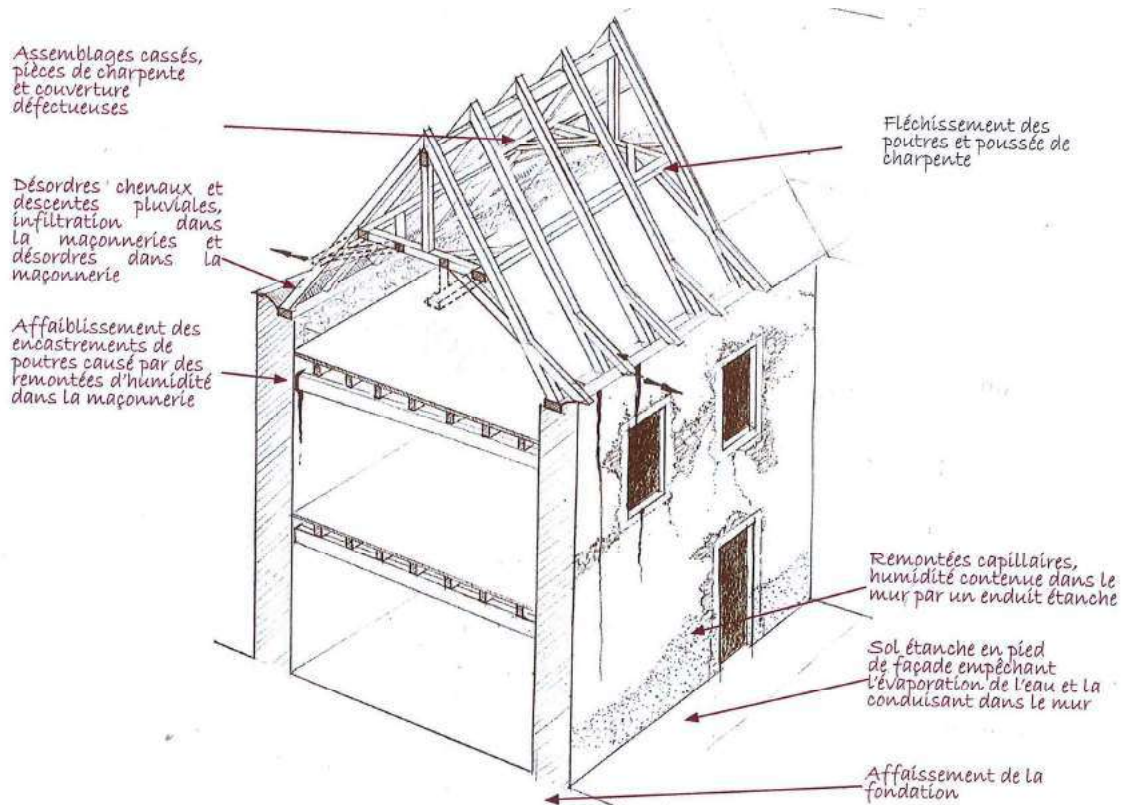 Assemblages cassés,
pièces de charpente
et couverture
défectueuses
Fléchissement des
poutres et poussée de
charpente
Désordres chenaux et
descentes pluviales,
infiltration dans
la maçonneries et
désordres dans la
maçonnerie
Affaiblissement des
encastrements de
poutres causé par des
remontées d'humidité
dans la maçonnerie
Remontées capillaires,
humidité contenue dans le
mur par un enduit étanche
Sol étanche en pied
de façade empêchant
l'évaporation de l'eau et la
conduisant dans le mur
Affaissement de la
fondation